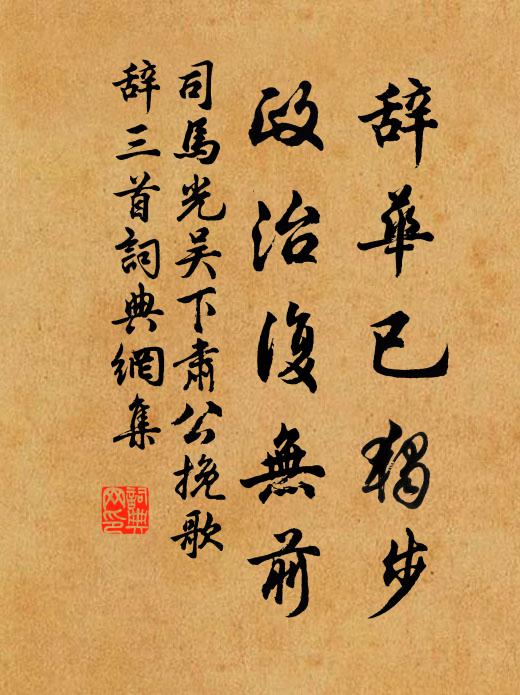 辞華已獨步
政治復無前
司馬光吴下肅公挽歌
辞三首詞典網集
詞典网印